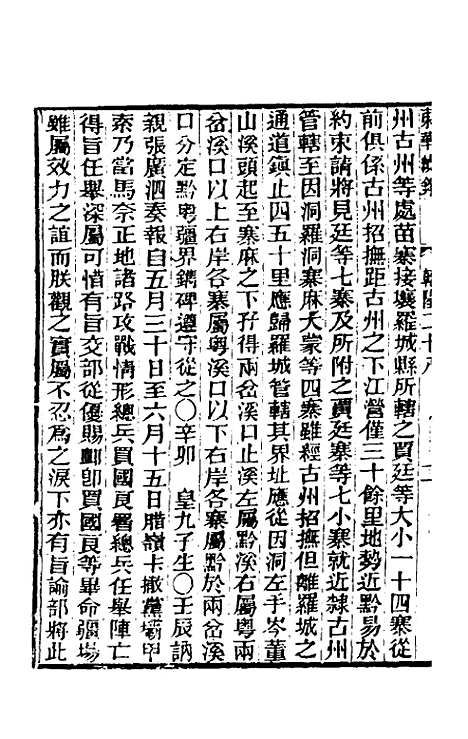 東華續錄
乾隆二十八
州古州等處苗寨接壤羅城縣所轄之賈廷等大小一十四寨從
前俱係古州招撫距古州之下江營僅三十餘里地勢近黔易於
約束請將見廷等七寨及所附之賈廷寨等七小寨就近隸古州
管轄至因洞羅洞寨麻大蒙等四寨雖經古州招撫但離羅城之
通道鎮止四五十里應歸羅城管轄其界址應從因洞左手岑董
山溪頭起至寨麻之下孖得兩岔溪口止溪左屬黔溪右屬粵兩
岔溪口以上右岸各寨屬粵溪口以下右岸各寨屬黔於兩岔溪
口分定黔粵疆界鐫碑遵守從之○辛卯 皇九子生○壬辰訥
親張廣泗奏報自五月三十日至六月十五日腊嶺卡撒黨壩甲
索乃當馬奈正地諸路攻戰情形總兵買國良署總兵任舉陣亡
得旨任舉深屬可惜有旨交部從優賜卹買國良等畢命疆場
雖屬效力之誼而朕觀之實屬不忍為之淚下亦有旨諭部將此